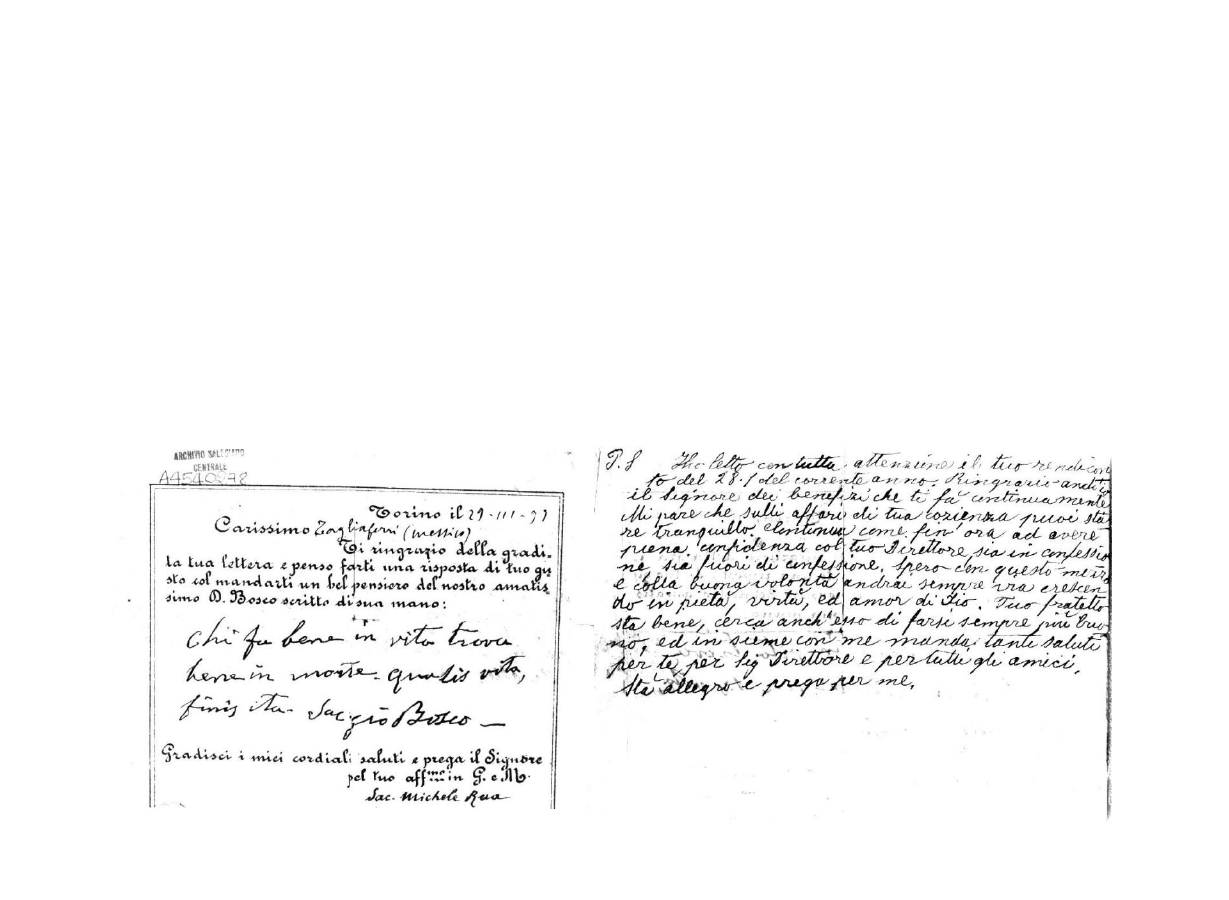 ARCHIVIO SALESIANO
CENTRALE
A4540878
Torino il 29-III-97
Carissimo Tagliaferri (Messico)
Ti ringrazio della gradi-
ta tua lettera e penso farti una risposta di tuo gu
sto col mandarti un bel pensiero del nostro amatis
simo D. Bosco scritto di sua mano:
Chi fa bene in vita trova
bene in morte. Qualis vita,
finis ita. Sac. Gio Bosco —
Gradisci i miei cordiali saluti e prega il Signore
pel tuo aff.mo in G. e M.
Sac. Michele Rua
P.S Ho letto con tutta attenzione il tuo rendicon
to del 28.1 del corrente anno. Ringrazio anch'io
il Signore dei benefizi che ti fa continuamente
Mi pare che sulli affari di tua cozienza puoi sta
re tranquillo. Continua come fin'ora ad avere
piena confidenza col tuo Direttore sia in confessio
ne sia fuori di confessione. Spero con questo mezzo
e colla buona volontà andrai sempre via crescen
do in pietà, virtù, ed amor di Dio. Tuo fratello
sta bene, cerca anch'esso di farsi sempre più buo
no, ed in sieme con me manda tanti saluti
per te, per Sig Direttore e per tutti gli amici.
Sta allegro e prega per me.